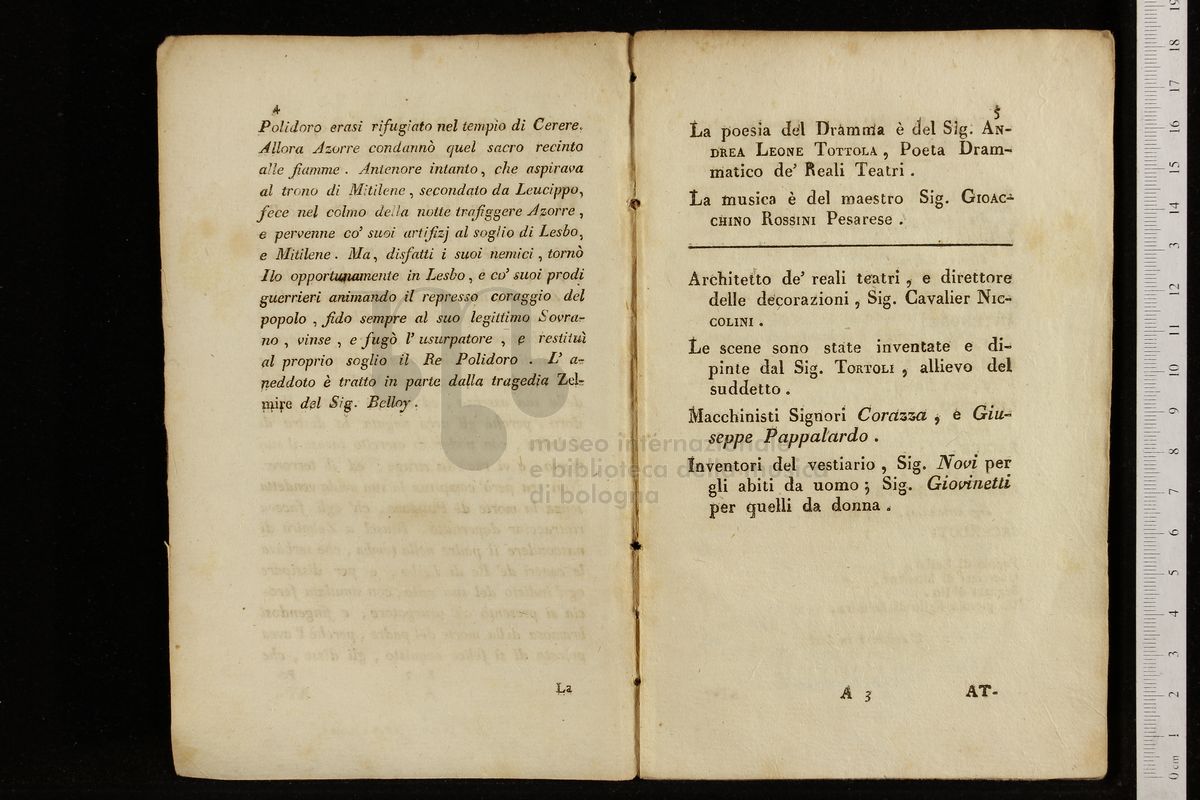 4
Polidoro erasi rifugiato nel tempio di Cerere.
Allora Azorre condannò quel sacro recinto
alle fiamme . Antenore intanto , che aspirava
al trono di Mitilene , secondato da Leucippo,
fece nel colmo della notte trafiggere Azorre ,
e pervenne co' suoi artifizj al soglio di Lesbo,
e Mitilene . Ma, disfatti i suoi nemici , tornò
Ilo opportunamente in Lesbo , e co' suoi prodi
guerrieri animando il represso coraggio del
popolo , fido sempre al suo legittimo Sovra-
no , vinse , e fugò l' usurpatore , e restituì
al proprio soglio il Re Polidoro . L' a-
neddoto è tratto in parte dalla tragedia Zel-
mire del Sig. Belloy .
La
5
La poesia del Dramma è del Sig. AN-
DREA LEONE TOTTOLA , Poeta Dram-
matico de' Reali Teatri .
La musica è del maestro Sig. GIOAC-
CHINO ROSSINI Pesarese .
Architetto de' reali teatri , e direttore
delle decorazioni , Sig. Cavalier NIC-
COLINI .
Le scene sono state inventate e di-
pinte dal Sig. TORTOLI , allievo del
suddetto .
Macchinisti Signori Corazza , e Giu-
seppe Pappalardo .
Inventori del vestiario , Sig. Novi per
gli abiti da uomo ; Sig. Giovinetti
per quelli da donna .
A 3 AT-
museo internazionale
e biblioteca della musica
di bologna
0 cm 1 2 3 4 5 6 7 8 9 10 11 12 13 14 15 16 17 18 19